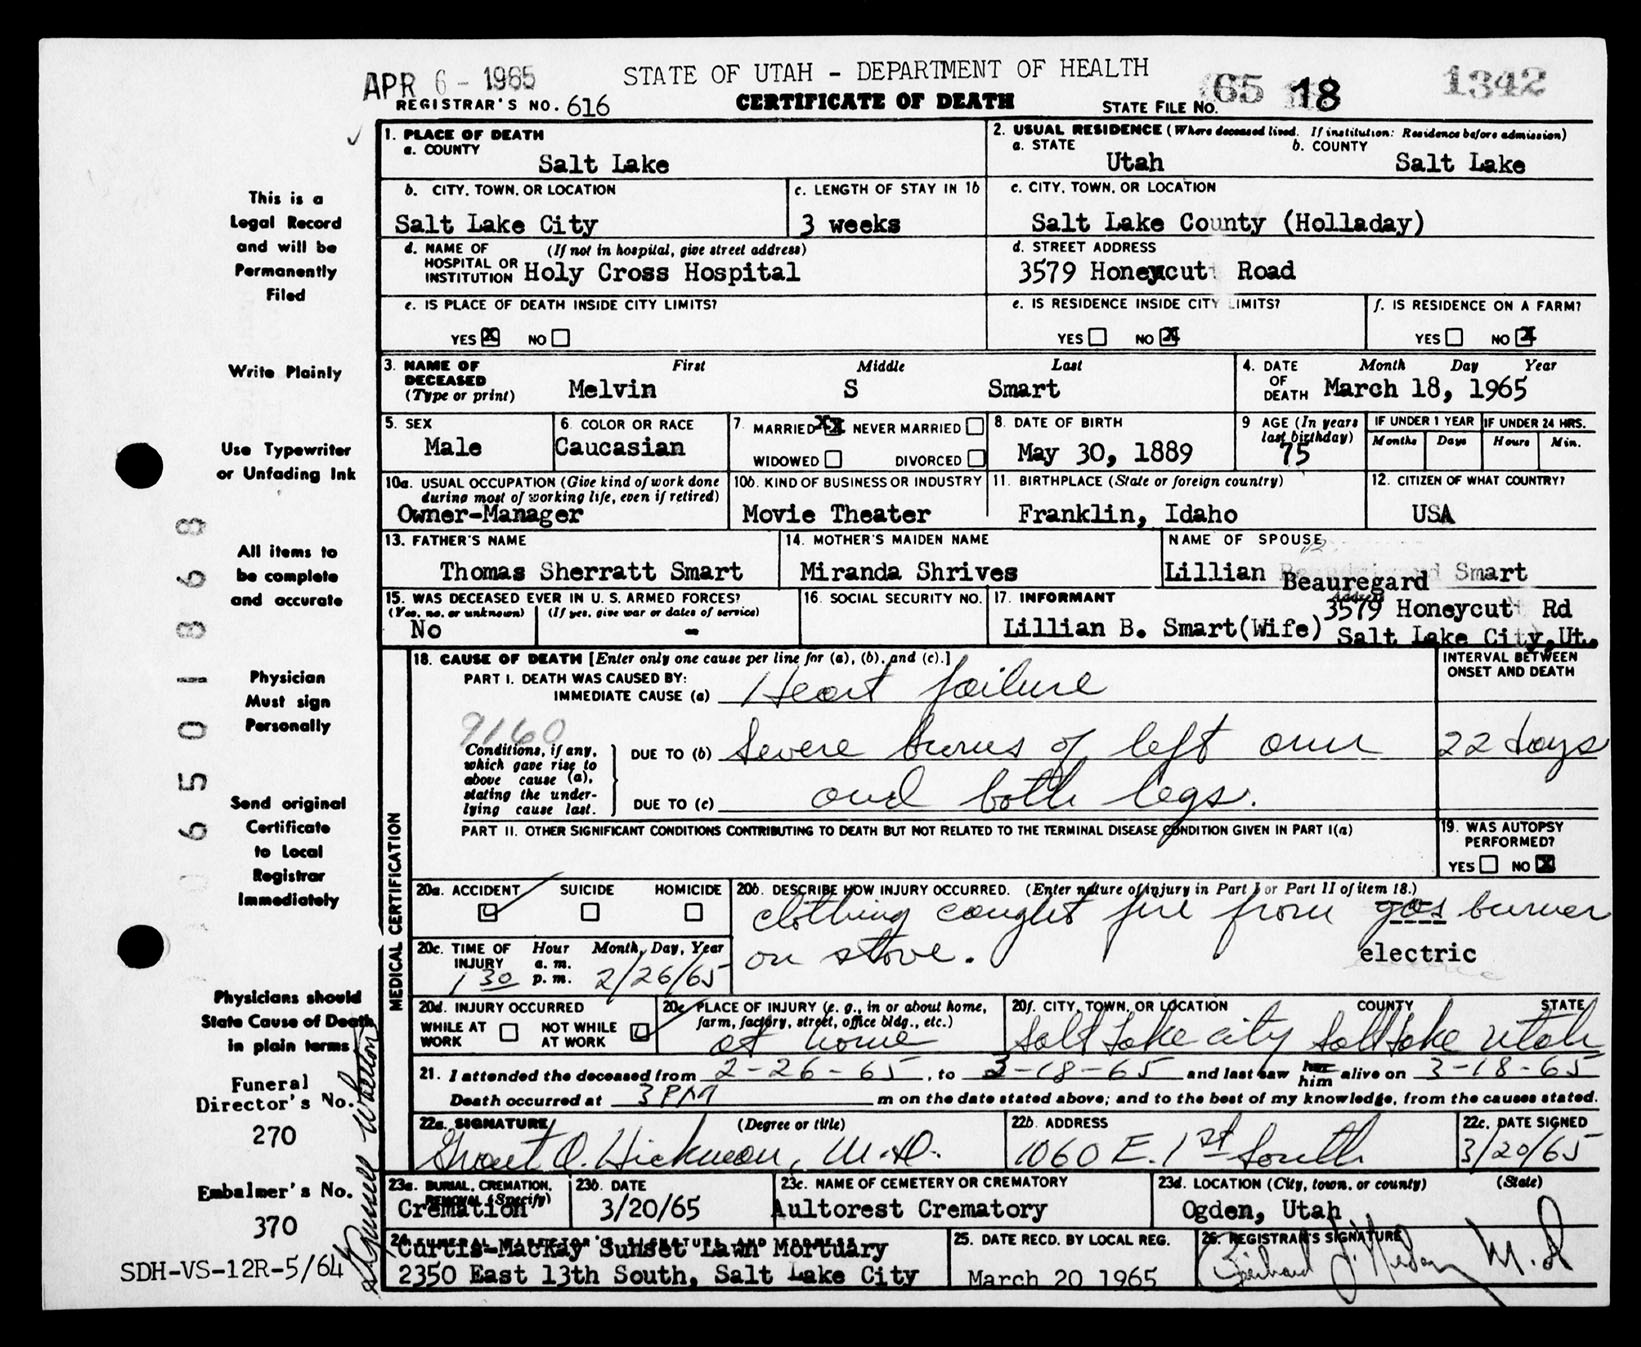 APR 6 - 1965
STATE OF UTAH - DEPARTMENT OF HEALTH
REGISTRAR'S NO. 616
CERTIFICATE OF DEATH
STATE FILE NO. 65 18 1342
1. PLACE OF DEATH
a. COUNTY
Salt Lake
2. USUAL RESIDENCE (Where deceased lived. If institution: Residence before admission)
a. STATE
Utah
b. COUNTY
Salt Lake
b. CITY, TOWN, OR LOCATION
Salt Lake City
c. LENGTH OF STAY IN 1b
3 weeks
c. CITY, TOWN, OR LOCATION
Salt Lake County (Holladay)
d. NAME OF HOSPITAL OR INSTITUTION
(If not in hospital, give street address)
Holy Cross Hospital
d. STREET ADDRESS
3579 Honeycut Road
e. IS PLACE OF DEATH INSIDE CITY LIMITS?
YES X NO
e. IS RESIDENCE INSIDE CITY LIMITS?
YES NO X
f. IS RESIDENCE ON A FARM?
YES NO X
3. NAME OF DECEASED (Type or print)
First Middle Last
Melvin S Smart
4. DATE OF DEATH
Month Day Year
March 18, 1965
5. SEX
Male
6. COLOR OR RACE
Caucasian
7. MARRIED X NEVER MARRIED
WIDOWED DIVORCED
8. DATE OF BIRTH
May 30, 1889
9. AGE (In years last birthday)
75
IF UNDER 1 YEAR
Months Days
IF UNDER 24 HRS.
Hours Min.
10a. USUAL OCCUPATION (Give kind of work done during most of working life, even if retired)
Owner-Manager
10b. KIND OF BUSINESS OR INDUSTRY
Movie Theater
11. BIRTHPLACE (State or foreign country)
Franklin, Idaho
12. CITIZEN OF WHAT COUNTRY?
USA
13. FATHER'S NAME
Thomas Sherratt Smart
14. MOTHER'S MAIDEN NAME
Miranda Shrives
NAME OF SPOUSE
Lillian Beauregard Smart
15. WAS DECEASED EVER IN U. S. ARMED FORCES?
(Yes, no, or unknown) (If yes, give war or dates of service)
No -
16. SOCIAL SECURITY NO.
17. INFORMANT
Lillian B. Smart(Wife)
3579 Honeycut Rd
Salt Lake City, Ut.
18. CAUSE OF DEATH [Enter only one cause per line for (a), (b), and (c).]
INTERVAL BETWEEN ONSET AND DEATH
PART I. DEATH WAS CAUSED BY:
IMMEDIATE CAUSE (a) Heart failure
9160
Conditions, if any, which gave rise to above cause (a), stating the underlying cause last.
DUE TO (b) Severe burns of left arm
22 days
DUE TO (c) and both legs.
PART II. OTHER SIGNIFICANT CONDITIONS CONTRIBUTING TO DEATH BUT NOT RELATED TO THE TERMINAL DISEASE CONDITION GIVEN IN PART I(a)
19. WAS AUTOPSY PERFORMED?
YES NO X
MEDICAL CERTIFICATION
20a. ACCIDENT SUICIDE HOMICIDE
20b. DESCRIBE HOW INJURY OCCURRED. (Enter nature of injury in Part I or Part II of item 18.)
clothing caught fire from gas burner
on stove.
electric
20c. TIME OF INJURY
Hour Month, Day, Year
a. m.
p. m.
1 30 2/26/65
20d. INJURY OCCURRED
WHILE AT WORK NOT WHILE AT WORK
20e. PLACE OF INJURY (e. g., in or about home, farm, factory, street, office bldg., etc.)
at home
20f. CITY, TOWN, OR LOCATION COUNTY STATE
Salt Lake City Salt Lake Utah
21. I attended the deceased from 2-26-65, to 3-18-65 and last saw her him alive on 3-18-65
Death occurred at 3 PM m on the date stated above; and to the best of my knowledge, from the causes stated.
22a. SIGNATURE (Degree or title)
Grant O. Hickman, M.D.
22b. ADDRESS
1060 E. 1st South
22c. DATE SIGNED
3/20/65
23a. BURIAL, CREMATION, REMOVAL (Specify)
Cremation
23b. DATE
3/20/65
23c. NAME OF CEMETERY OR CREMATORY
Aultorest Crematory
23d. LOCATION (City, town, or county) (State)
Ogden, Utah
24.
Curtis-MacKay Sunset Lawn Mortuary
2350 East 13th South, Salt Lake City
25. DATE RECD. BY LOCAL REG.
March 20 1965
26. REGISTRAR'S SIGNATURE
M.D
This is a
Legal Record
and will be
Permanently
Filed
Write Plainly
Use Typewriter
or Unfading Ink
All items to
be complete
and accurate
Physician
Must sign
Personally
Send original
Certificate
to Local
Registrar
Immediately
Physicians should
State Cause of Death
in plain terms
Funeral
Director's No.
270
Embalmer's No.
370
SDH-VS-12R-5/64